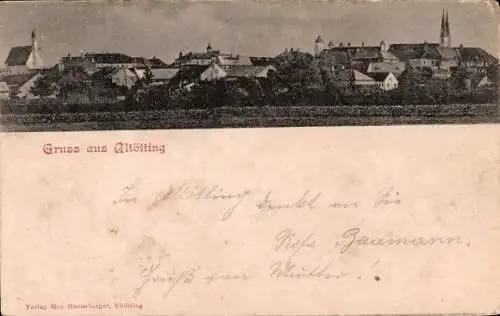 Gruss aus Altötting
In Altötting denkt an Sie
Rosa Baumann.
Gruß von Mutter!
Verlag Max Hannsberger, Altötting